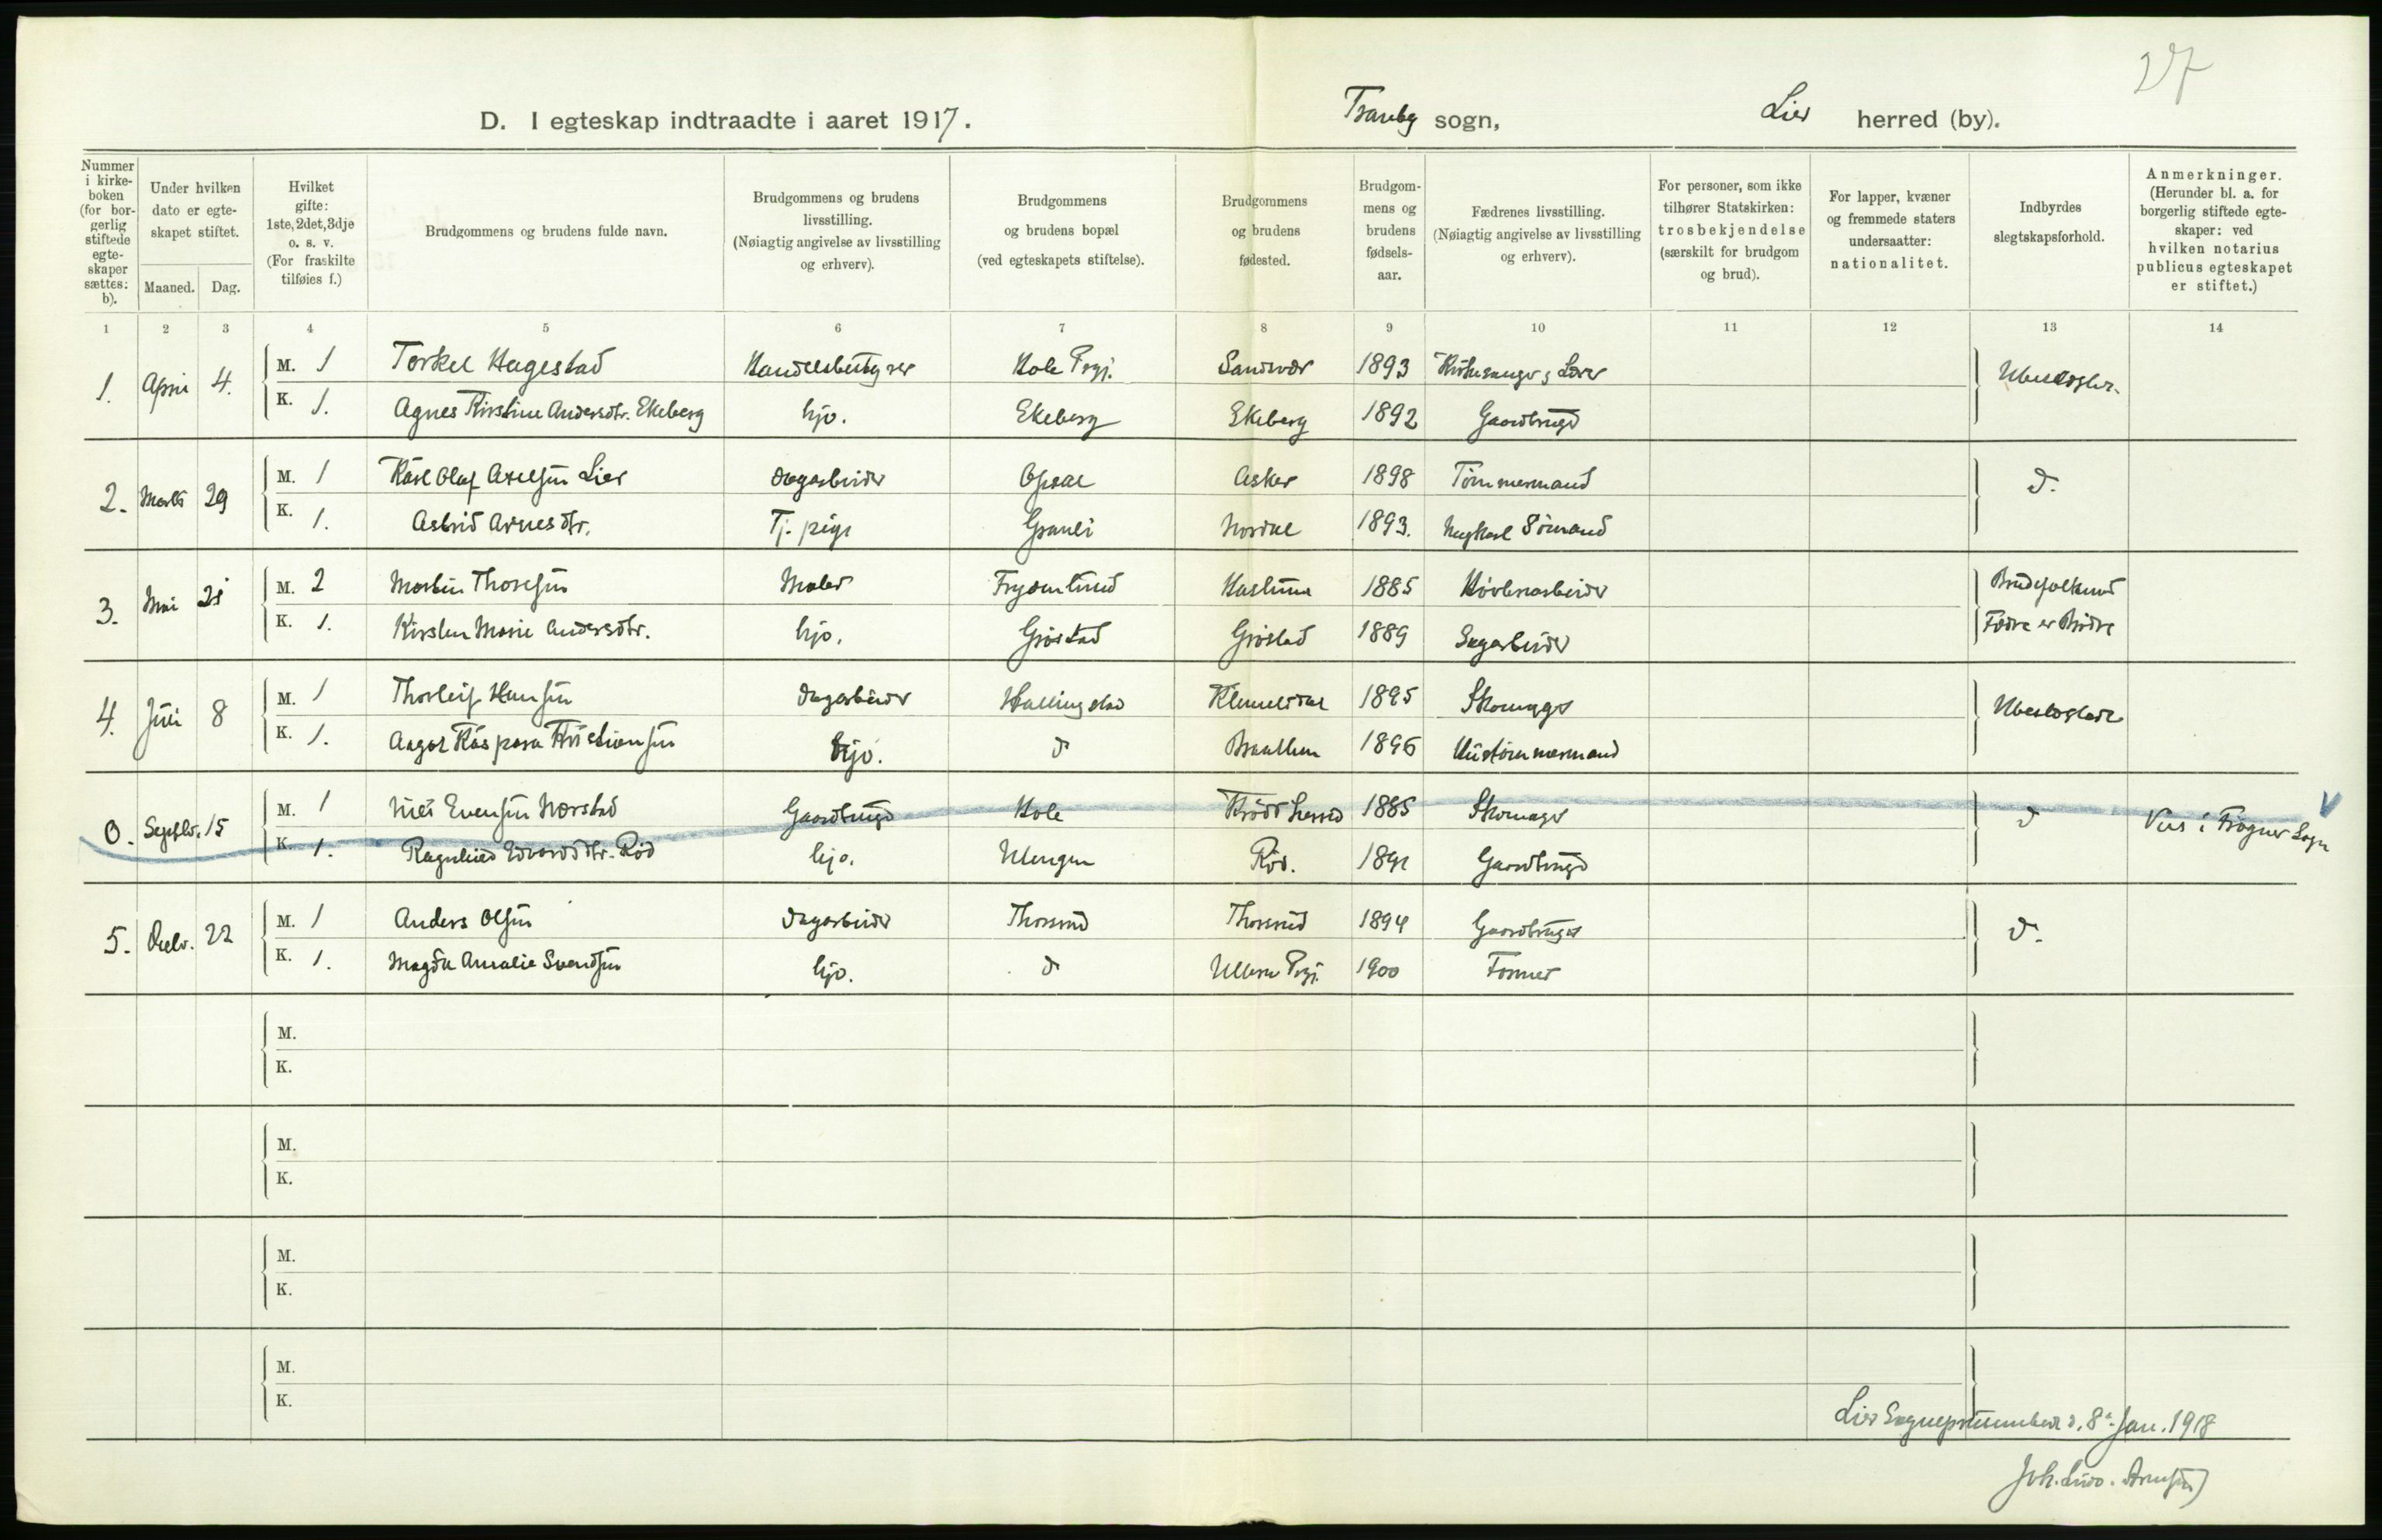 27
D. I egteskap indtraadte i aaret 1917. Tranby sogn, Lier herred (by).
Nummer i kirke-boken (for bor-gerlig stiftede egte-skaper sættes: b).
Under hvilken dato er egte-skapet stiftet.
Maaned. Dag.
Hvilket gifte: 1ste, 2det, 3dje o. s. v. (For fraskilte tilføies f.)
Brudgommens og brudens fulde navn.
Brudgommens og brudens livsstilling. (Nøiagtig angivelse av livsstilling og erhverv).
Brudgommens og brudens bopæl (ved egteskapets stiftelse).
Brudgommens og brudens fødested.
Brudgom-mens og brudens fødsels-aar.
Fædrenes livsstilling. (Nøiagtig angivelse av livsstilling og erhverv).
For personer, som ikke tilhører Statskirken: trosbekjendelse (særskilt for brudgom og brud).
For lapper, kvæner og fremmede staters undersaatter: nationalitet.
Indbyrdes slegtskapsforhold.
Anmerkninger. (Herunder bl. a. for borgerlig stiftede egte-skaper: ved hvilken notarius publicus egteskapet er stiftet.)
1 2 3 4 5 6 7 8 9 10 11 12 13 14
1. April 4. M. 1 Torkel Hagestad Handelsbestyrer Hole Prgj. Sandsvær 1893 Kirkesanger & Lærer
K. 1. Agnes Kirstine Andersdtr. Ekeberg hjv. Ekeberg Ekeberg 1892 Gaardbruger
2. Marts 29 M. 1 Karl Olaf Axelsen Lier Dagarbeider Opsal Asker 1898 Tømmermand d.
K. 1. Astrid Arnesdtr. Tj. pige Granli Nordal 1893. Sömand
3. Mai 21 M. 2 Martin Thoresen Maler Frydenlund Haslum 1885 Brudefolkenes
K. 1. Kirsten Marie Andersdtr. hjv. Gjøstad Gjøstad 1889 Sagarbeider Fædre er Brødre
4. Juli 8 M. 1 Thorleif Hansen Dagarbeider Hallingstad 1895 Skomager
K. 1. Aagot Kaspara Kristiansen hjv. d 1896 Hustømmermand
0. Septbr. 15 M. 1 Nils Evensen Hørstad Gaardbruger Hole Krødsherred 1885 Skomager d Vies i Frogner Sogn
K. 1. Ragnhild Edvardsdtr. Röd hjv. Ulengen Röd. 1891 Gaardbruger
5. Decbr. 22 M. 1 Anders Olsen Dagarbeider Thorsrud Thorsrud 1894 Gaardbruger d.
K. 1. Magda Amalie Svendsen hjv. d Ullern Prgj. 1900 Former
M.
K.
M.
K.
M.
K.
M.
K.
Lier Sogneprestembede d. 8de Jan. 1918
Joh. Ludv. Arnesen